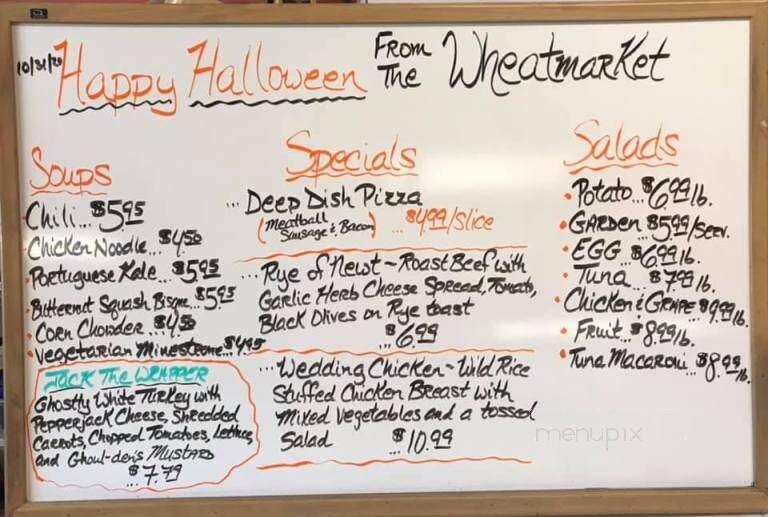 10/31/20
Happy Halloween From The Wheatmarket
Soups
Chili... $5.95
Chicken Noodle... $4.50
Portuguese Kale... $5.95
Butternut Squash Bisque... $5.95
Corn Chowder... $4.50
Vegetarian Minestrone... $4.95
Jack The Wrapper
Ghostly White Turkey with
Pepperjack Cheese, Shredded
Carrots, Chopped Tomatoes, Lettuce
and Ghoul-den's Mustard
$7.79
Specials
... Deep Dish Pizza
(Meatball
Sausage & Bacon) ... $4.99/slice
... Rye of Newt ~ Roast Beef with
Garlic Herb Cheese Spread, Tomato,
Black Olives on Rye toast
... $6.99
... Wedding Chicken ~ Wild Rice
Stuffed Chicken Breast with
Mixed Vegetables and a tossed
Salad ... $10.99
Salads
• Potato... $6.99 lb.
• Garden $5.99/serv.
• Egg... $6.99 lb.
• Tuna... $7.99 lb.
• Chicken & Grape $9.99 lb.
• Fruit... $8.99 lb.
• Tuna Macaroni... $8.99 lb.
menupix